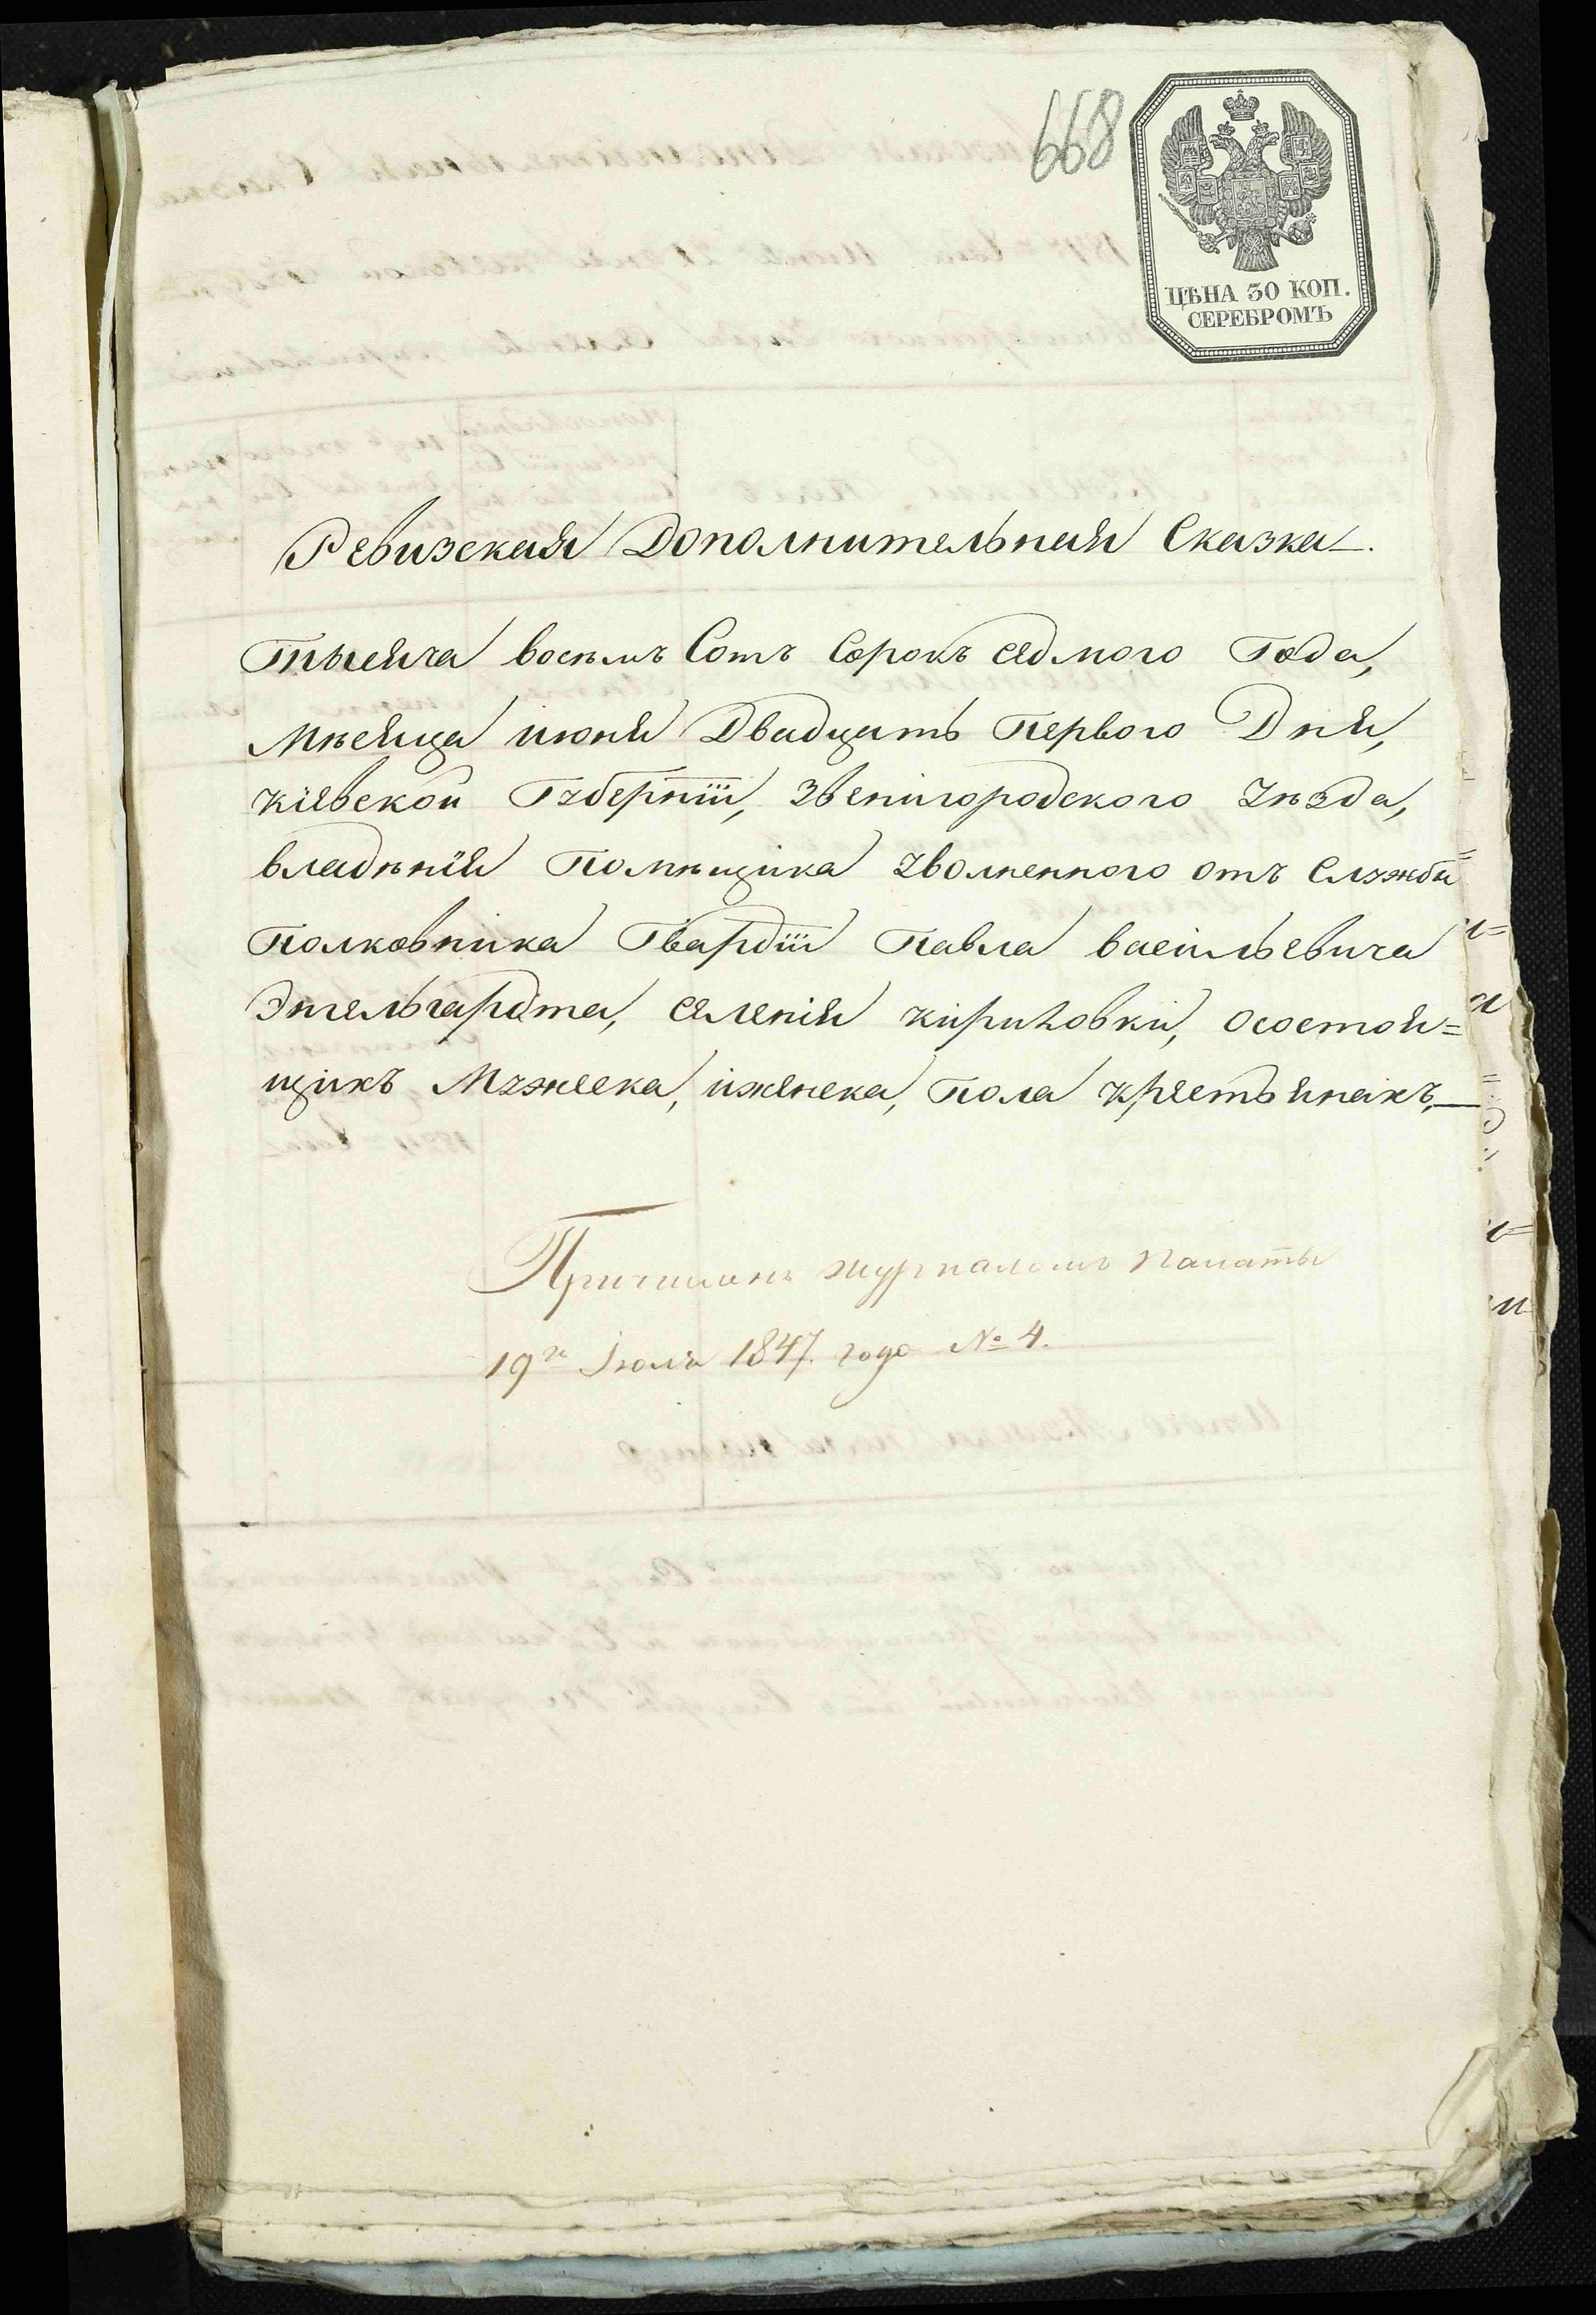 668
ЦѢНА 30 КОП.
СЕРЕБРОМЪ
Ревизская Дополнительная Сказка.
Тысяча восемъ Сотъ Сорокъ седмого Года,
мѣсяца июня Двадцать Первого Дня,
Кіевской Губерніи, Звенигородского Уѣзда,
владѣнія Помѣщика уволненного отъ Службы
Полковника Гвардіи Павла Васильевича
Энгельгардта, селенія Кириловки, осостоя=
щихъ Мужеска, иженска, Пола Крестьянахъ,—
Причисленъ журналомъ Палаты
19го Іюля 1847. года № 4.